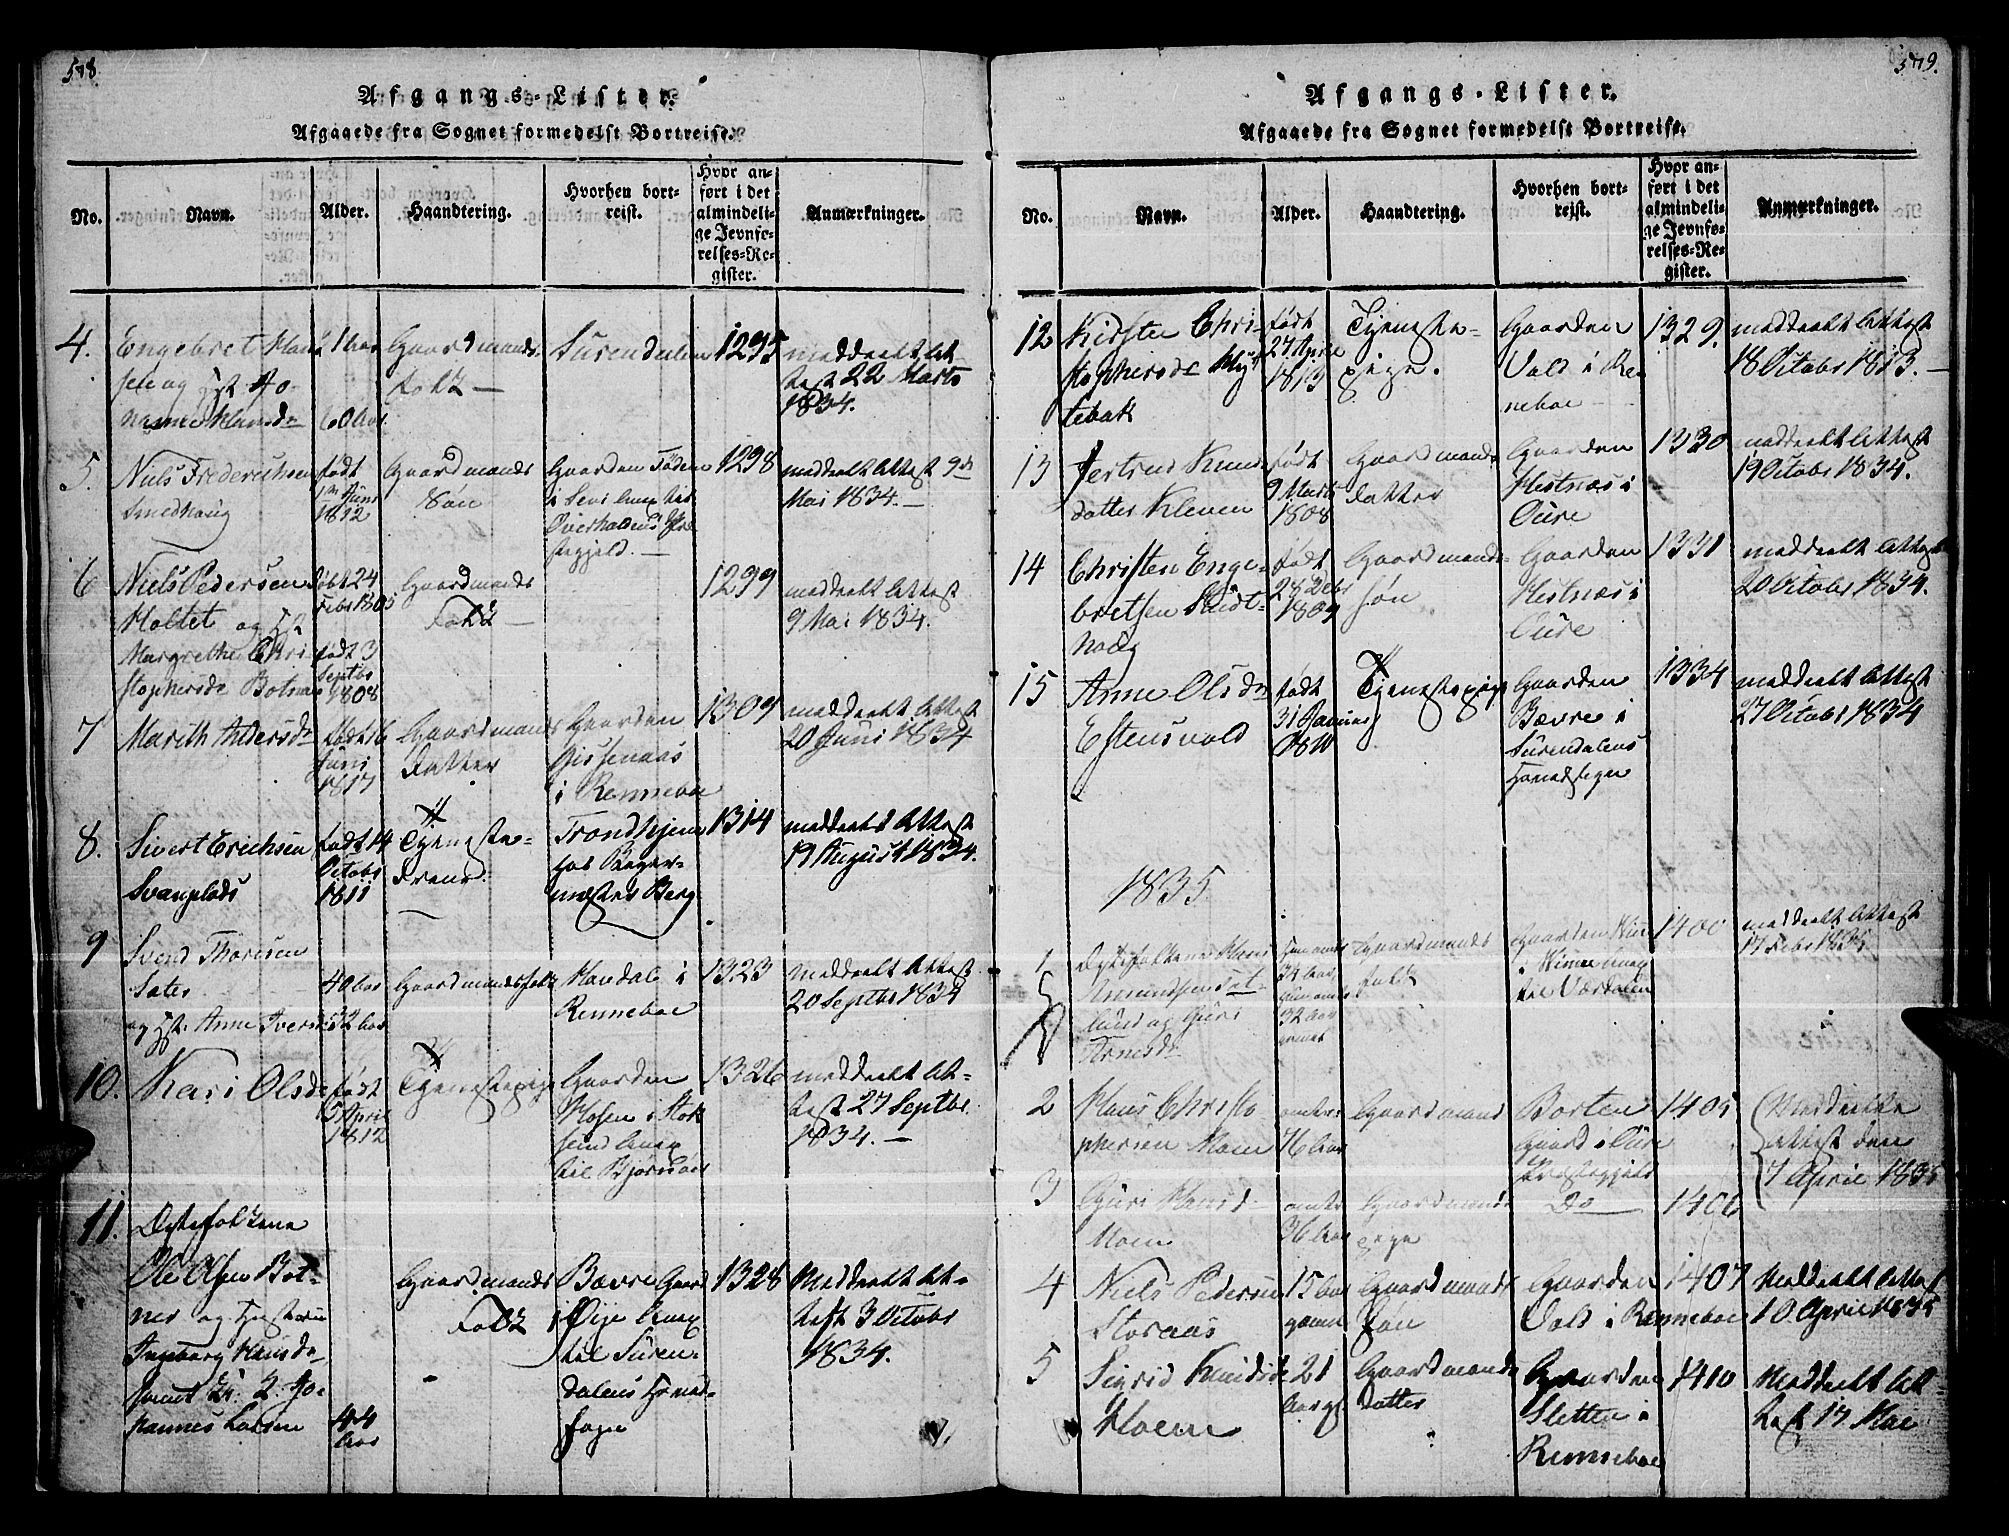 578.
Afgangs-Lister.
Afgaaede fra Sognet formedelst Bortreise.
No. Navn. Alder. Haandtering. Hvorhen bortreist. Hvor anført i det almindelige Jevnførelses-Register. Anmærkninger.
4. Engebret
og Hst Jo-
60 Aar
Gaardmands
Folk
Surendalen
1295
meddeelt At-
test 22 Marts
1834.
5. Niels Frederichsen
Smedhaug
født
1812
Gaardmands
Søn
Gaarden
Overhaldens
stegjeld.
1298
meddeelt Attest 9de
Mai 1834.
6 Niels Pedersen
Holtet og Hst
Margrethe Chri-
stophersdr Botnes
født 24
Febr 1805
født 3
Septbr
1808
Gaardmands
Folk
1299
meddeelt Attest
9 Mai 1834.
7 Marith Aldersdr
født 16
Juni
1817
Gaardmands
Datter
Gaarden
Gissenaas
i Renneboe
1309
meddeelt Attest
20 Juni 1834
8. Sivert Erichsen
Svanplads
født 14
Octobr
1811
Tjeneste-
dreng.
Trondhjem
hos Borger-
mester Berg
1314
meddeelt Attest
19 August 1834.
9 Svend Thoresen
Sæter
og Hst. Anne Iversdr
40 Aar
32 Aar
Gaardmandsfolk
Havdal i
Renneboe
1323
meddeelt Attest
20 Septbr 1834
10. Kari Olsdr
født
5 April
1812
Tjenestepige
Gaarden
Mosen i Stok
sund Anex
til Bjørnøer
1326
meddeelt At-
test 27 Septbr.
1834.
11. Ægtefolkene
Ole Olsen Bot-
nes og Hustrue
Ingeborg Hansdr
samt
hannes Larsen
44
Aar
Gaardmands
Folk
Bævre Gaard
i Øye Anex
til Suren-
dalens Hoved-
sogn
1328
Meddeelt At-
test 3 Octobr
1834.
579.
Afgangs-Lister.
Afgaaede fra Sognet formedelst Bortreise.
No. Navn. Alder. Haandtering. Hvorhen bortreist. Hvor anført i det almindelige Jevnførelses-Register. Anmærkninger.
12 Kirsten Chri-
stophersdr Myr
tebak
født
27 April
1813
Tjeneste-
pige.
Gaarden
Vold i Re
neboe
1329.
meddeelt Attest
18 Octobr 1813.
13 Jertrud Knud
datter Kleven
født
9 Marts
1808
Gaardmands
datter
Gaarden
Hestnæs i
Oure
1330
meddeelt Attest
19 Octobr 1834.
14 Christen Enge-
bretsen
født
28 Debr
1809
Gaardmands
søn
Gaarden
Hestnæs i
Oure
1331
meddeelt Attest
20 Octobr 1834.
15 Anne Olsdr
Estensvold
født
31 Januar
1810
Tjenestepige
Gaarden
Bævre i
Surendalens
Hovedsogn
1334
meddeelt Attest
27 Octobr 1834
1835.
1 Ægtefolkene Hans
Amundsen
lund og Guri
Arnesdr
34 Aar
32 Aar
Gaardmands
folk
Gaarden
til Værdalen
1400
meddeelt Attest
17 Febr 1835.
2 Hans Christo-
phersen Moen
Gaardmand
Borten
Gaard i Oure
Præstegjeld
1405
Meddeelte
Attest den
7 April 1835
3 Guri Hansd
Moen
36 Aar
Gaardmands
pige
Do
1406
4 Niels Pedersen
Storaas
15 Aar
gammel
Gaardmands
søn
Gaarden
Vold i Renneboe
1407
Meddeelt Attest
10 April 1835
5 Sigrid Knudsdr
Hoem
21
Aar
Gaardmands
Datter
Gaarden
Sletten i
Renneboe
1410
Meddeelt At-
test 17 Mai